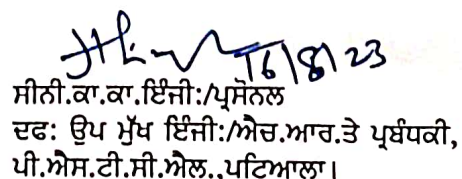 16/8/23
ਸੀਨੀ.ਕਾ.ਕਾ.ਇੰਜੀ:/ਪ੍ਰਸੋਨਲ
ਦਫ: ਉਪ ਮੁੱਖ ਇੰਜੀ:/ਐਚ.ਆਰ.ਤੇ ਪ੍ਰਬੰਧਕੀ,
ਪੀ.ਐਸ.ਟੀ.ਸੀ.ਐਲ.,ਪਟਿਆਲਾ।